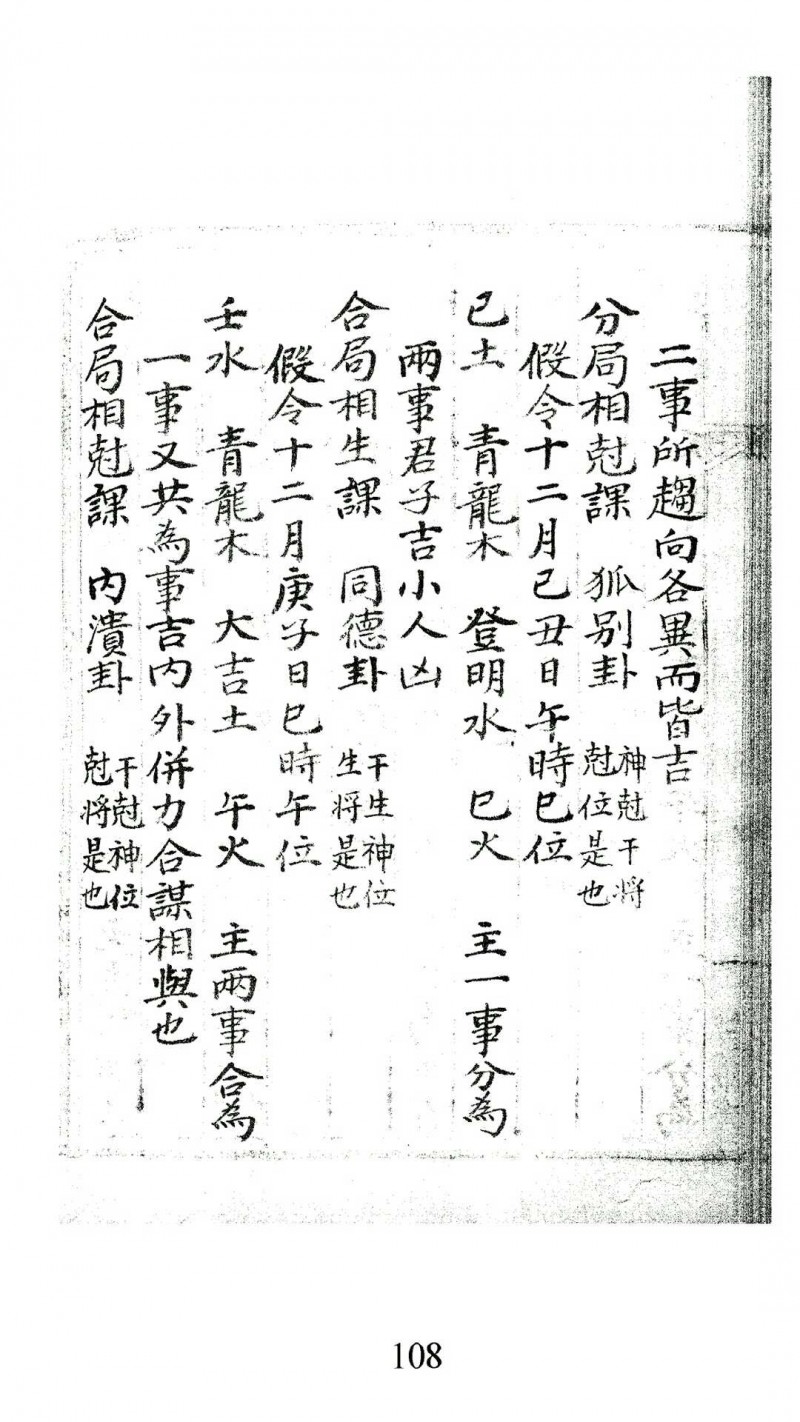 二事所趨向各異而皆吉
分局相尅課 狐别卦 神尅干將尅位是也
假令十二月己丑日午時巳位
己土 青龍木 登明水 巳火 主一事分為
兩事君子吉小人凶
合局相生課 同德卦 干生神位生將是也
假令十二月庚子日巳時午位
壬水 青龍木 大吉土 午火 主兩事合為
一事又共為事吉内外併力合謀相與也
合局相尅課 内潰卦 干尅神位尅將是也
108